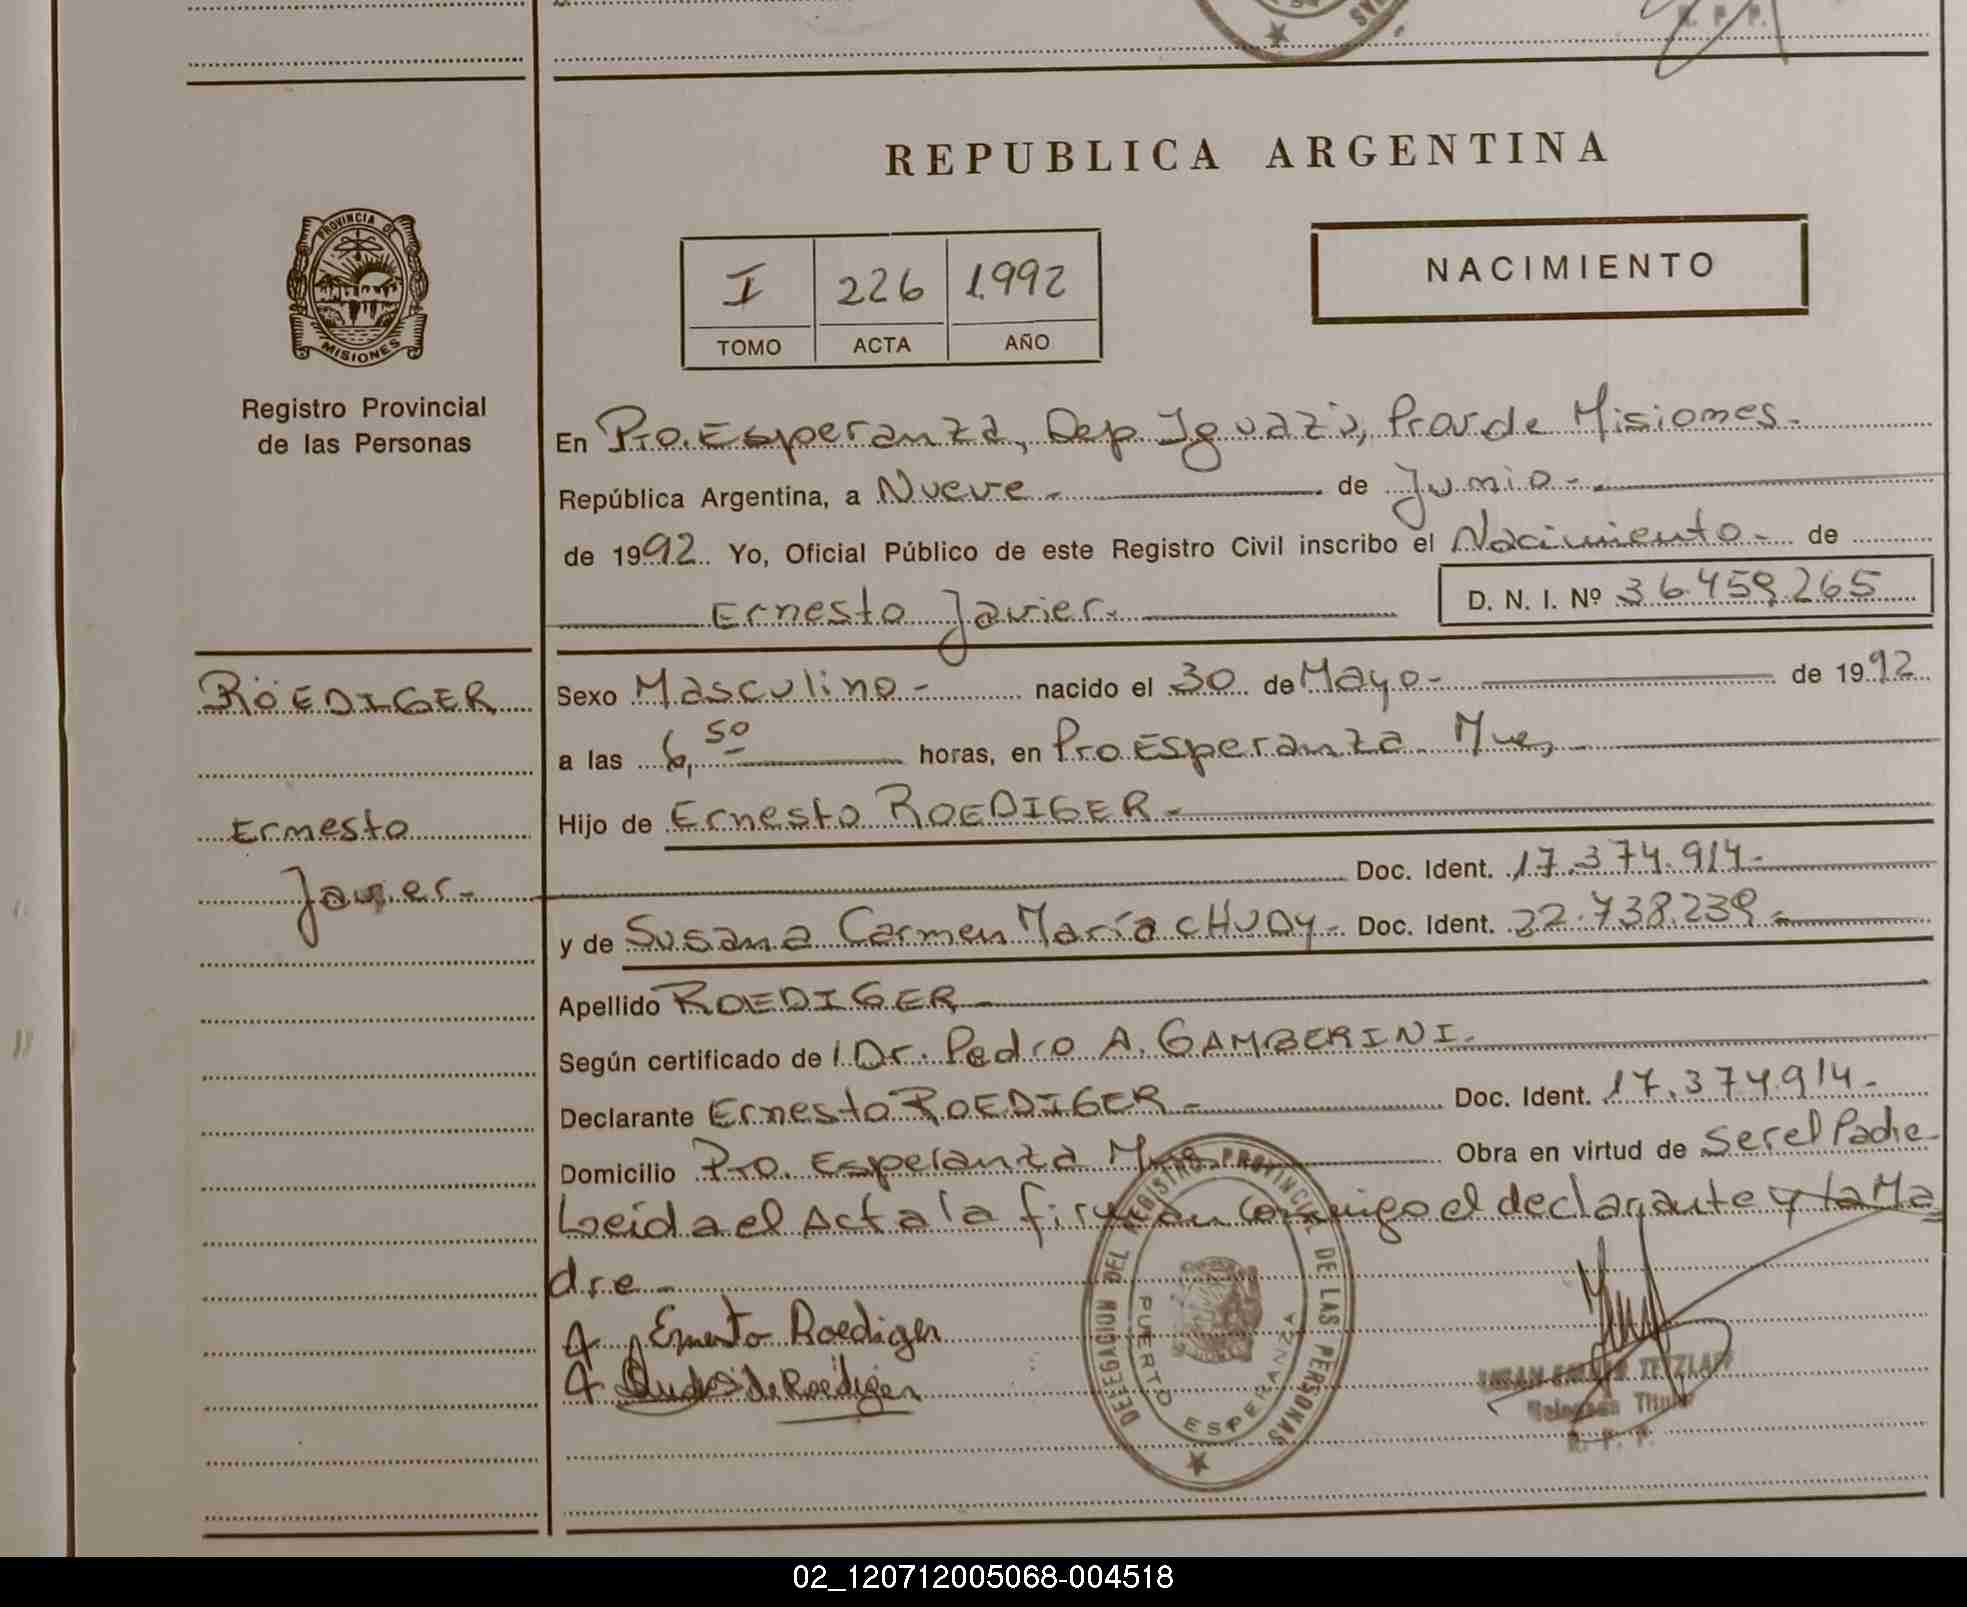 REPUBLICA ARGENTINA
PROVINCIA DE
MISIONES
Registro Provincial
de las Personas
I 226 1.992
TOMO ACTA AÑO
NACIMIENTO
En Pto. Esperanza, Dep. Iguazú, Prov de Misiones.-
República Argentina, a Nueve.- de Junio.-
de 1992. Yo, Oficial Público de este Registro Civil inscribo el Nacimiento.- de
Ernesto Javier.-
D. N. I. Nº 36.459.265
ROEDIGER
Ernesto
Javier.-
Sexo Masculino.- nacido el 30 de Mayo.- de 1992
a las 6,50 horas, en Pto Esperanza Mnes,
Hijo de Ernesto ROEDIGER.-
Doc. Ident. 17.374.914.-
y de Susana Carmen María CHUDY.- Doc. Ident. 22.738.239.-
Apellido ROEDIGER.-
Según certificado de l Dr. Pedro A. GAMBERINI.-
Declarante Ernesto ROEDIGER.- Doc. Ident. 17.374.914.-
Domicilio Pto. Esperanza Mnes Obra en virtud de ser el Padre-
Leida el Acta la firman conmigo el declarante y la Ma
dre.-
Ernesto Roediger
de Roediger
DELEGACION DEL REGISTRO PROVINCIAL DE LAS PERSONAS
PUERTO ESPERANZA
TETZLAFF
Titular
R. P. P.
02_120712005068-004518